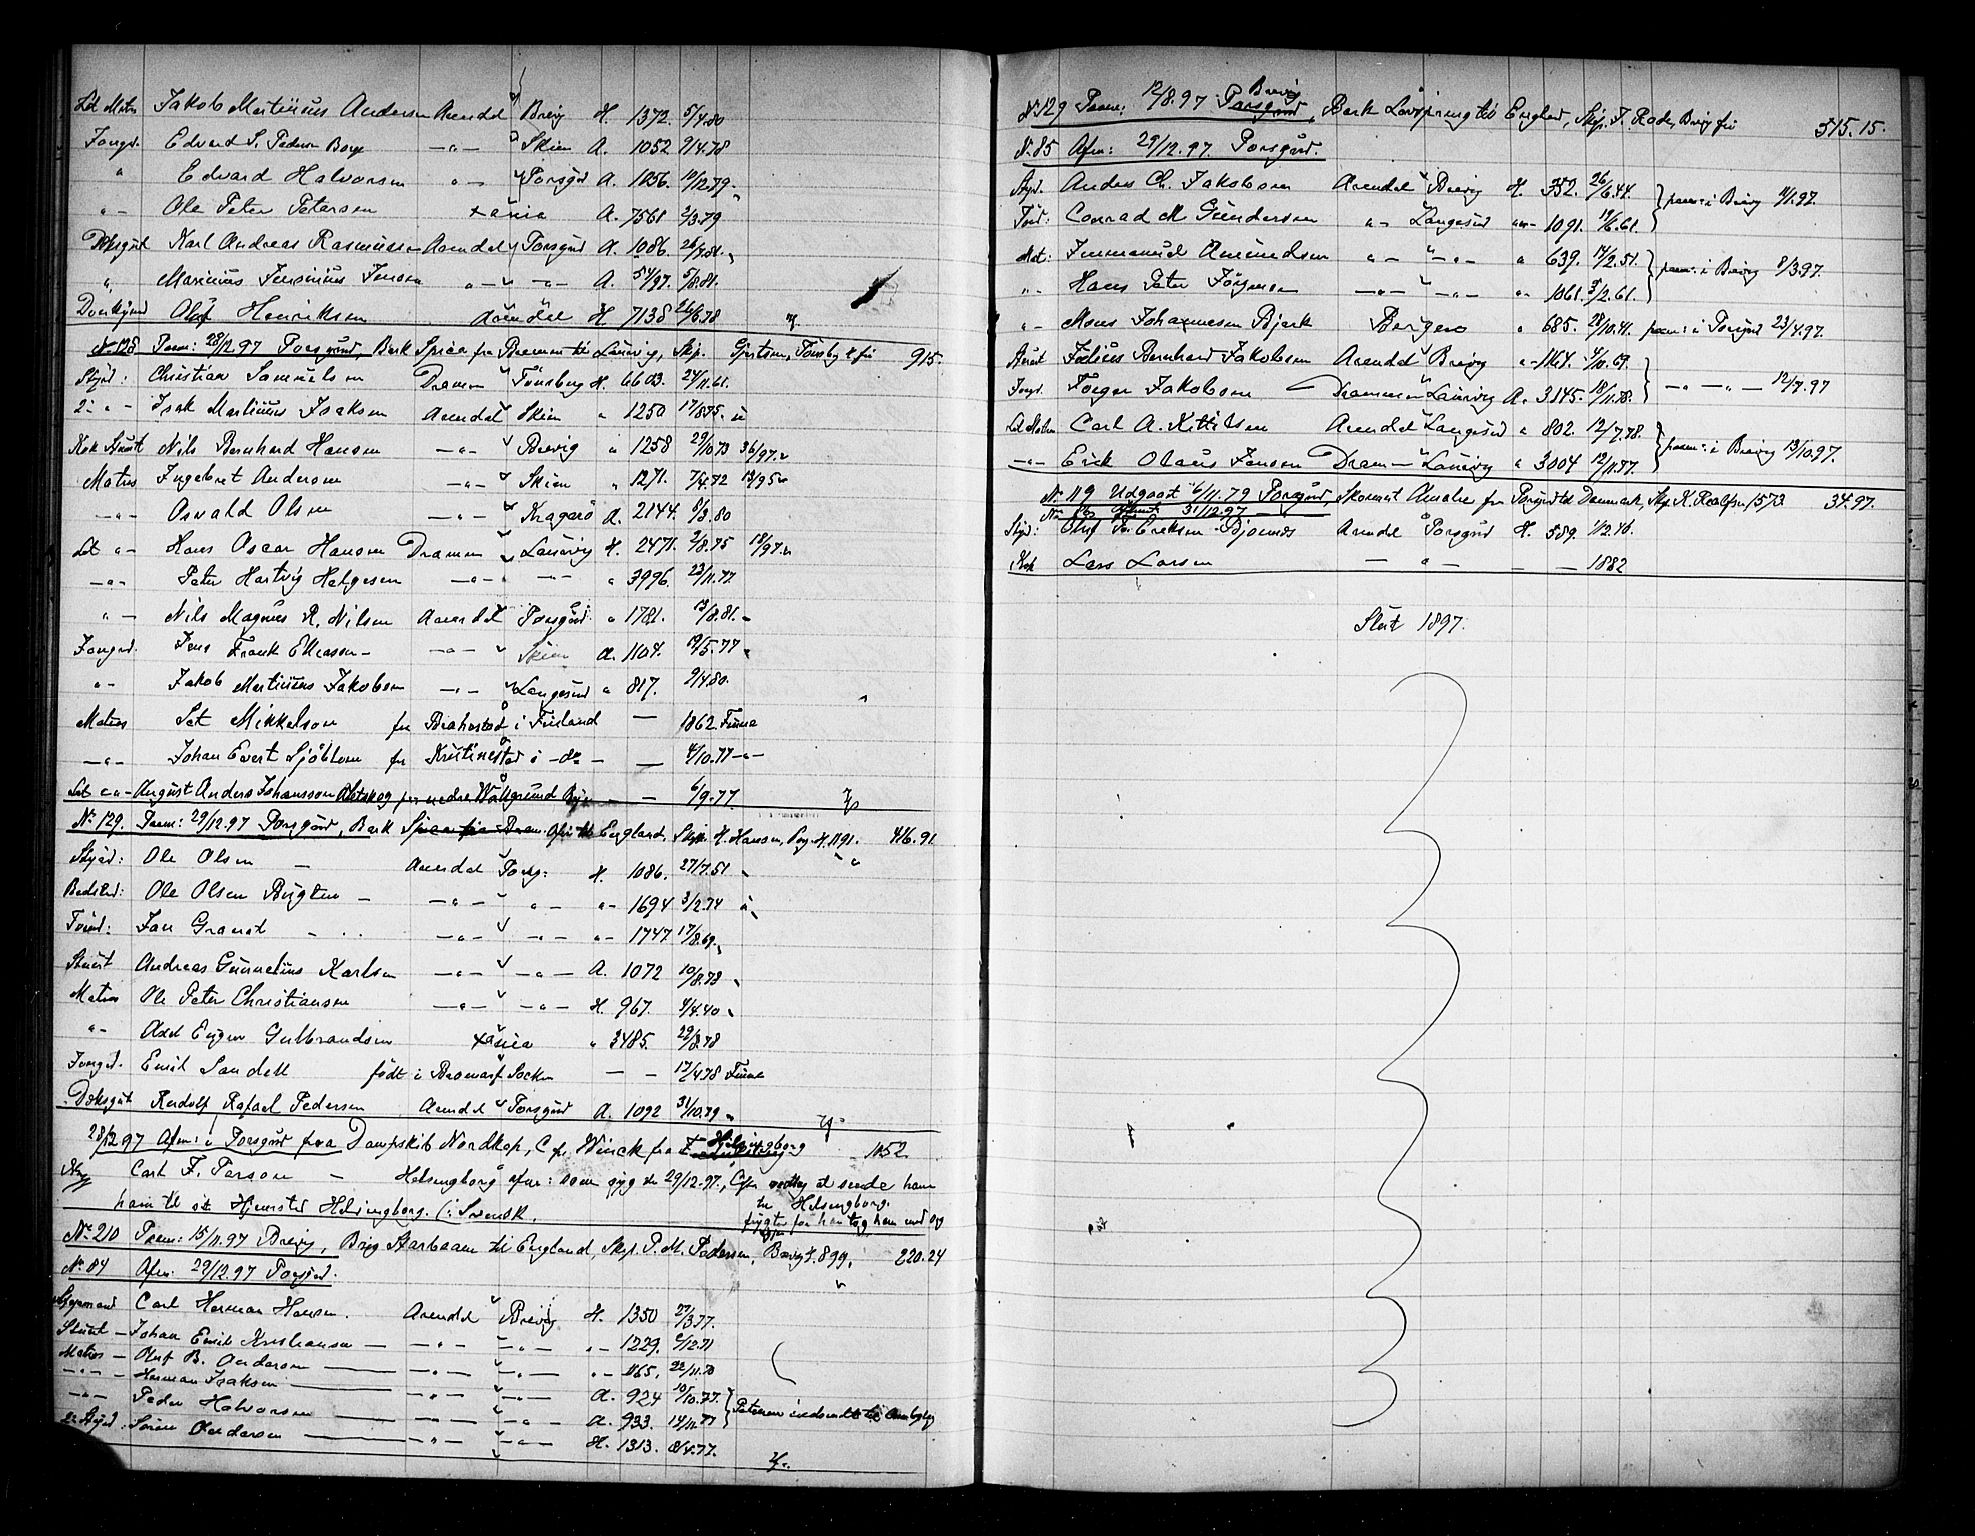 Ltl Matr Jakob Martinius Andersen Arendal Brevig H. 1372. 5/4.80
Jongd. Edvard S. Pedersen Borge —"— Skien A. 1052 9/4.78
" Edvard Halvorsen "— Porsgrd A. 1056. 10/12.79
"— Ole Peter Petersen Xania A. 7568 2/3.79
Dæksgut Karl Andreas Rasmussen Arendal Porsgrd A. 1086. 26/7.81.
" Marinius Jensenius Jensen "— —"— A. 54/97. 5/8.81.
Donkymd Olaf Henriksen Arendal H. 7138 26/6.78
No 128 Paam: 28/12.97 Porsgrund, Bark Spica fra Bremen til Laurvig, Skp. Gjertsen, Tønsberg 915.
Styrd: Christian Samuelsen Dramm Tønsberg H. 6603. 24/11.61.
2- "- Isak Martinius Isaksen Arendal Skien " 1250 17/8.75.
Kok Stuert Nils Bernhard Hansen —"— Brevig " 1258 29/10 73 36/97.
Matros Ingebret Andersen —"— Skien " 1271. 7/4.72 13/95
—"— Osvald Olsen —"— Kragerö A. 2144. 6/3.80
Ltl "— Hans Oscar Hansen Dramm Laurvig H. 2471. 2/8.75 18/97.
—"— Peter Hartvig Helgesen —"— —"— " 3996. 23/11.77.
"— Nils Magnus R. Nilsen Arendal Porsgrd. " 1781. 13/8.81.
Jongd. Jens Frank Eliassen —"— Skien A. 1104. 19/5.77
"— Jakob Martinius Jakobsen —"— Langesund " 817. 9/4.80.
Matros Set Mikkelson fra Brahestad i Finland — 1862 Finne
—"— Johan Evert Sjöblom fra Kristinestad i -do- — 4/10.77 -"-
Ltl "— August Anders Johansson fra nedre Wallgrund — — 6/9.77
No 129. Paam: 29/12.97 Porsgrd, Bark Spica fra til England, Skp. H. Hansen, Porsg. H. 1191. 416.91.
Styrd: Ole Olsen — Arendal Porsg: H. 1086. 27/7.51
Bedsted: Ole Olsen Bugten — —"— "— "— 1694 3/2.74
Tømd: Jan Granat —"— —"— "— 1747 17/8.69.
Stuert Andreas Gunnelius Karlsen —"— —"— A. 1072 10/8.78
Matros Ole Peter Christiansen —"— —"— H. 967. 4/4.40
"— Axel Eugen Gulbrandsen Xania " 3485. 29/8.78
Jongd. Emil Sandell født i Bromarf Socken — — 17/4 78 Finne
Dæksgut Rudolf Rafael Pedersen Arendal Porsgrd A. 1092 31/10.79
28/12 97 Afm: i Porsgrd fra Dampskib Nordkap, Cpt. Winck fra Helsingborg 1152.
Carl F. Persson — Helsingborg afm: som syg den 29/12.97., Cptn. at sende ham
ham til sit Hjemsted Helsingborg. (: Svensk. til Helsingborg.
frygter for han tog ham med sig
No 210 Paam: 15/11.97 Brevig, Brig Starbeam til England, Skp. P. M. Pedersen, Brevig H. 899. 220.24
No 84 Afm: 29/12.97 Porsgrd.
Styrmand Carl Herman Hansen. Arendal Brevig H. 1350 27/3.77.
Stuert — Johan Emil Kristiansen — —"— —"— "— 1229. 6/12.71
Matros — Oluf B. Andersen —"— —"— "— 1165. 22/11.78
—"— Herman Isaksen —"— —"— A. 924 10/10.77.
—"— Peder Halvorsen —"— —"— A. 933. 14/11.77 Patenen indsendt til Ombytg
2n Styrd. Søren Andersen —"— —"— H. 1313. 8/4.77.
No 129 Paam: 12/8.97 Porsgrund Brevig, Bark Løvspring til England, Skp. J. Rode, Brevig 515.15.
No 85 Afm: 29/12.97. Porsgrd.
Styd. Anders Ch. Jakobsen Arendal Brevig H. 352. 26/6.44. paam: i Brevig 4/1.97.
Tømd: Conrad M Gundersen "— Langesund "— 1091. 19/6.61.
Mat: Immanuel Amundsen "— —"— " 639. 14/2.51. paam: i Brevig 8/3.97.
"— Hans Peter Jörgensen —"— —"— "— 1061. 3/2.61.
"— Mons Johannesen Bjerk Bergen " 685. 28/10.41. paam: i Porsgrd 23/4.97.
Stuert Julius Bernhard Jakobsen Arendal Brevig "— 1164. 4/10.69.
Jongd. Jörgen Jakobsen Drammen Laurvig A. 3145. 18/11.78. —"— —"— 12/7.97
Ltl Matr Carl A. Kittilsen Arendal Langesund " 802. 12/7.78. paam: i Brevig 13/10.97.
—"— Erik Olaus Jensen Dram- Laurvig " 3004 12/11.77.
No 119 Udgaat 6/11.79 Porsgrd, Skonnert Amalie fra Porsgrd til Danmark, Skp. K. Realfsen 1573 34.97.
31/12.97
Styd: Oluf Eriksen Bjønnes Arendal Porsgrd H. 589. 1/12.46.
Kok Lars Larsen — " — — — 1882
Slut 1897.